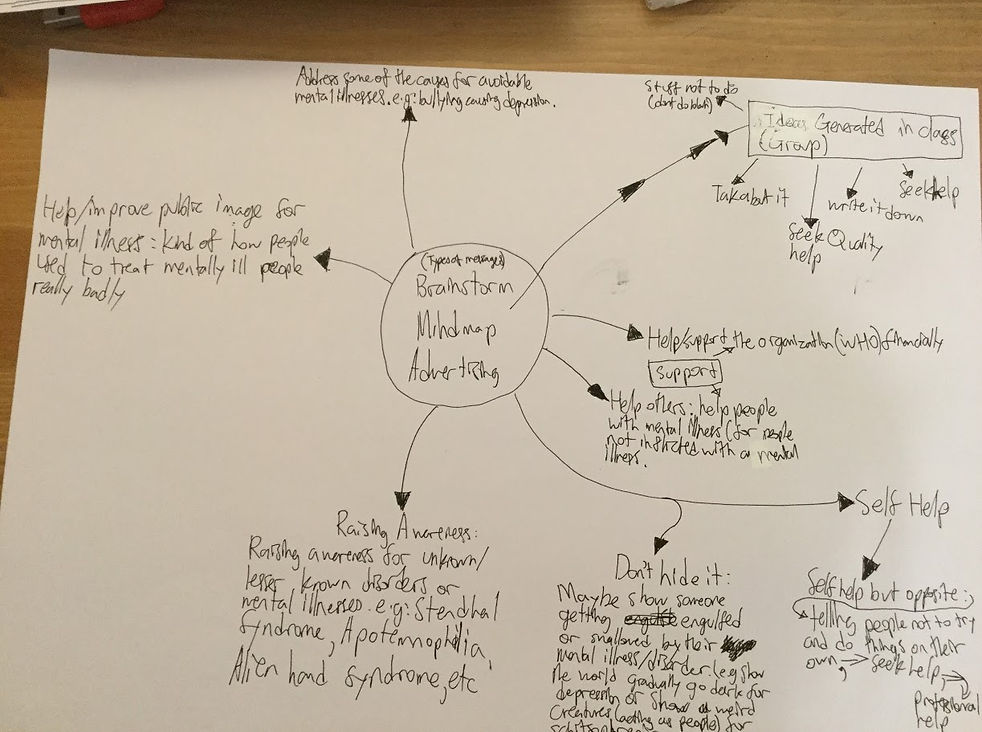 Address some of the causes for avoidable
mental illnesses. e.g: bullying causing depression.
Stuff not to do
(dont do
Ideas Generated in class
(Group)
Talk about it
Seek Quality
help
write it down
Seek help
Help/improve public image for
mental illness: kind of how people
used to treat mentally ill people
really badly
(Types of messages)
Brainstorm
Mindmap
Advertising
Help/support the organization (WHO) financially
support
Help others: help people
with mental illness (for people
not inflicted with a mental
illness.
Self Help
Self help but opposite:
telling people not to try
and do things on their
own, seek help,
professional
help
Raising Awareness:
Raising awareness for unknown/
lesser known disorders or
mental illnesses. e.g: Stendhal
Syndrome, Apotemnophilia,
Alien hand syndrome, etc
Don't hide it:
Maybe show someone
getting engulfed
or swallowed by their
mental illness/disorder. (e.g show
the world gradually go dark for
depression or show weird
creatures (acting as people) for